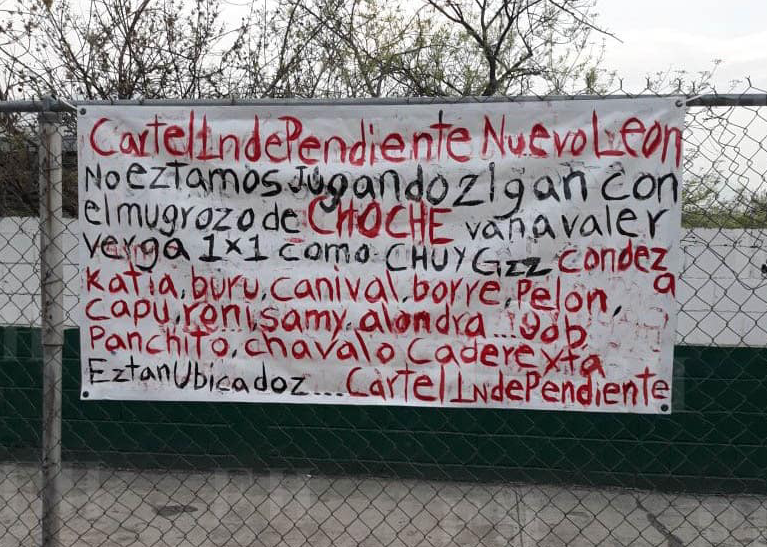 Cartel IndePendiente Nuevo Leon
No eztamos Jugando zigan con
el mugrozo de CHOCHE van a valer
verga 1x1 como CHUY Gzz condeza
katia, buru, canival, borre, Pelon,
capu, roni, samy, alondra... gob
Panchito, chavalo Caderexta
Eztan Ubicadoz... Cartel IndePendiente